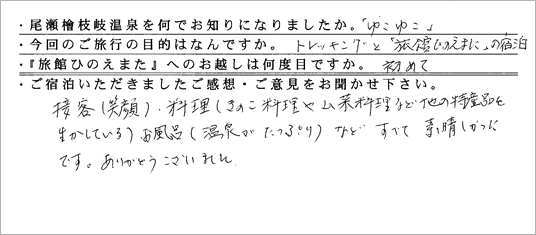 ・尾瀬檜枝岐温泉を何でお知りになりましたか。「ゆこゆこ」
・今回のご旅行の目的はなんですか。トレッキングと「旅館ひのえまた」の宿泊
・『旅館ひのえまた』へのお越しは何度目ですか。初めて
・ご宿泊いただきましたご感想・ご意見をお聞かせ下さい。
接客(笑顔)、料理(きのこ料理や山菜料理など他の特産品を
生かしている)お風呂(温泉がたっぷり)など すべて 素晴しかった
です。ありがとうございました。